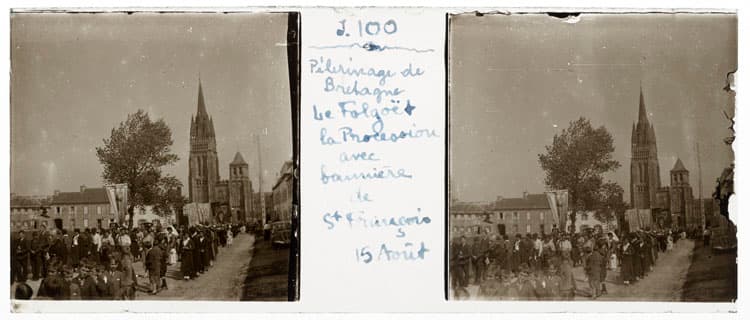 J. 100
Pélerinage de
Bretagne
Le Folgoët
la Procession
avec
bannière
de
St François
15 Août